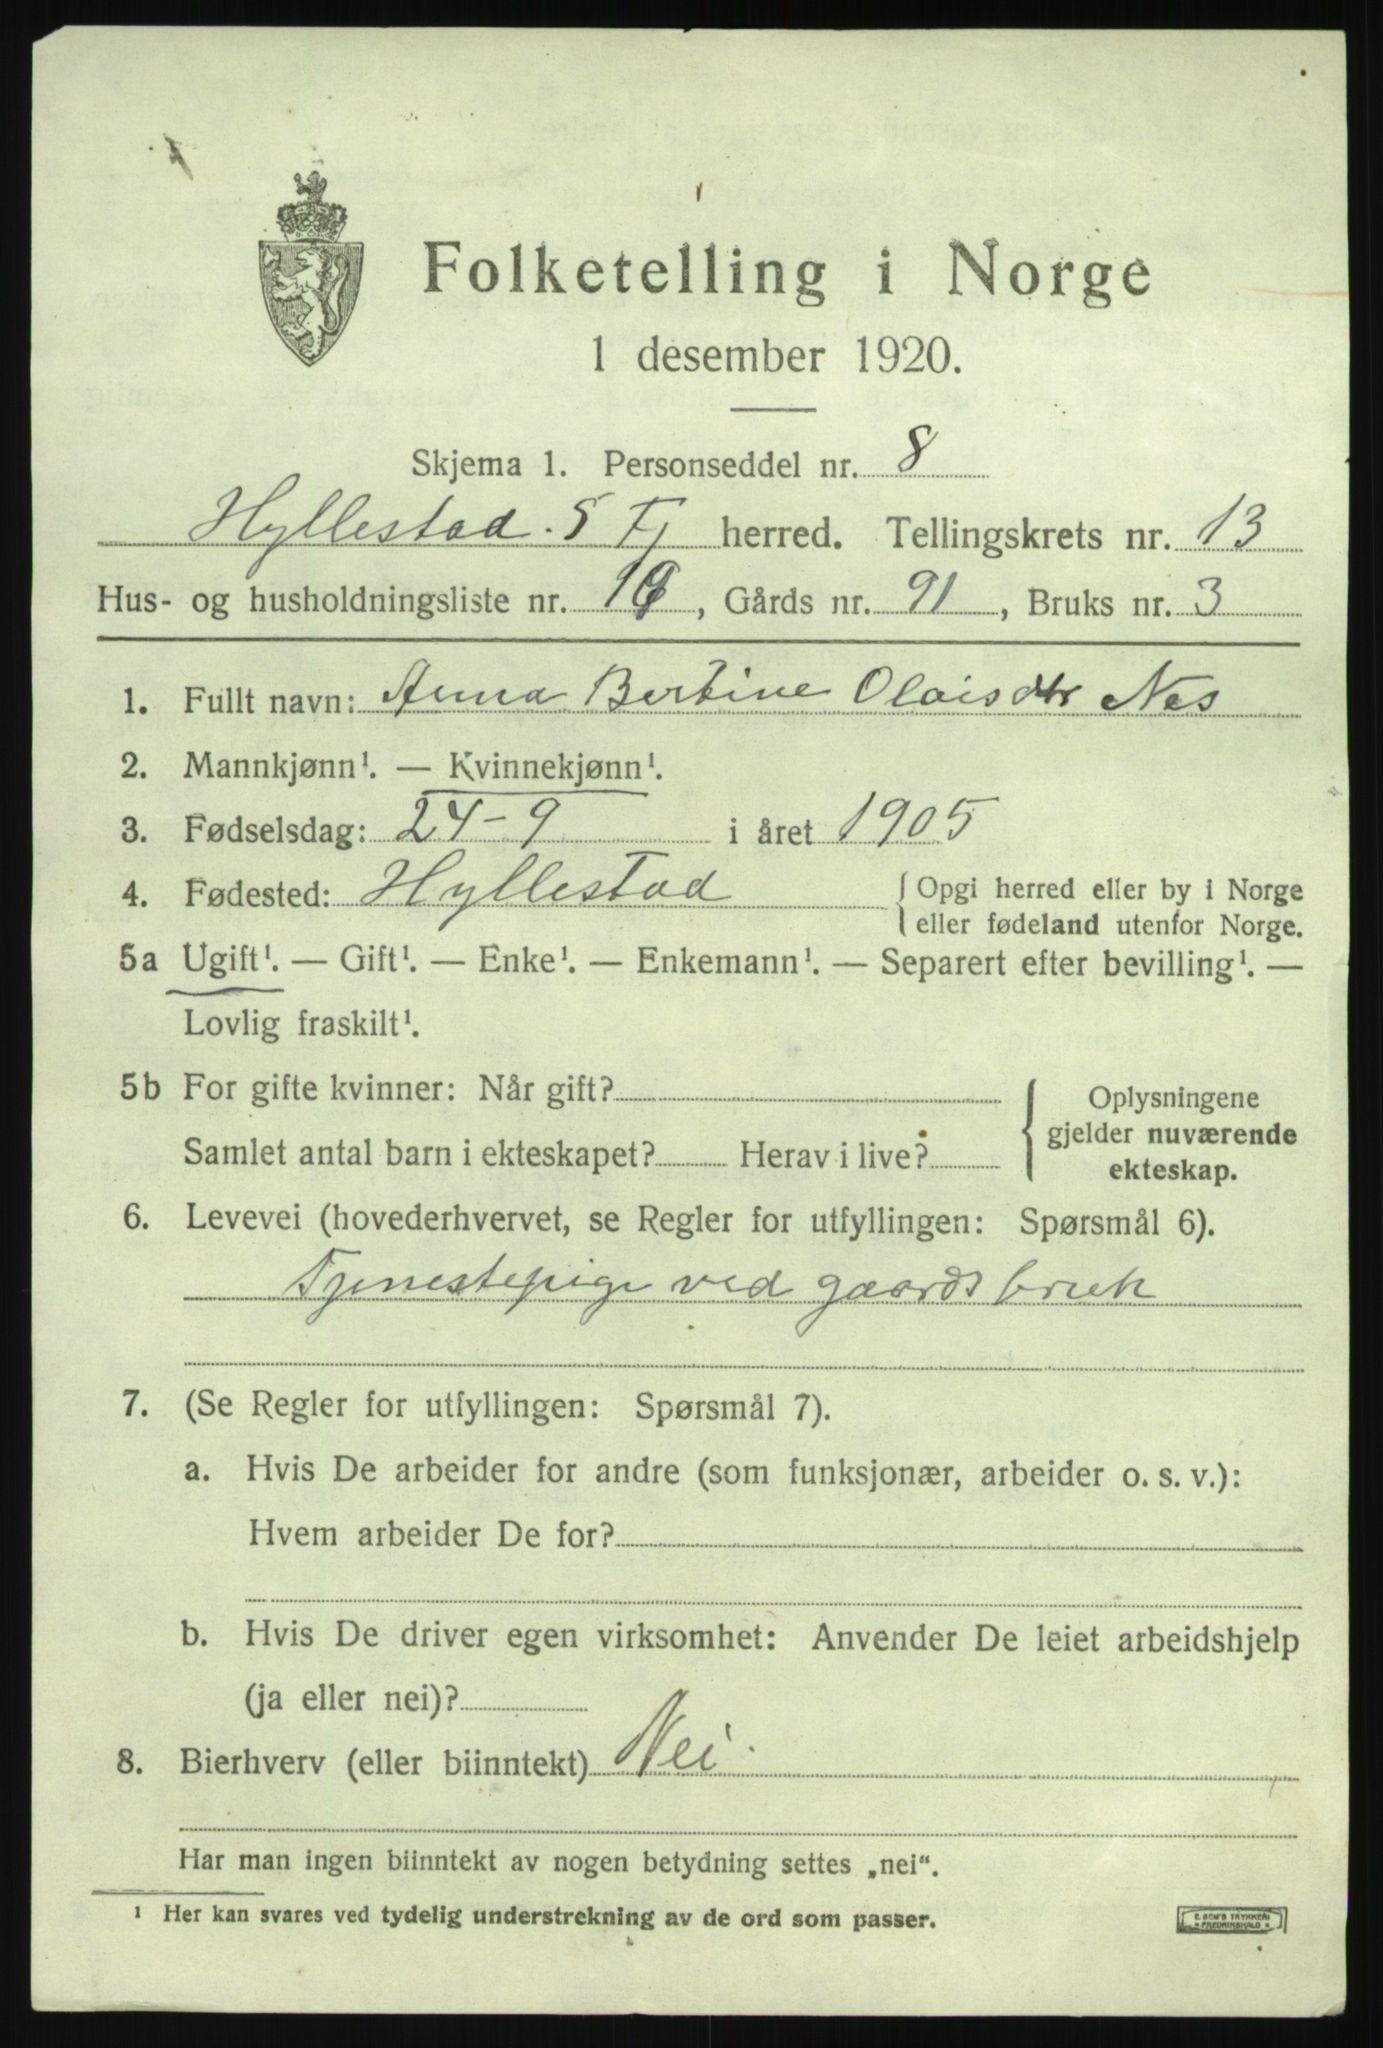 Folketelling i Norge
1 desember 1920.
Skjema 1. Personseddel nr. 8
Hyllestad. S Fj herred. Tellingskrets nr. 13
Hus- og husholdningsliste nr. , Gårds nr. 91, Bruks nr. 3
1. Fullt navn: Anna Bertine Olaisdtr Nes
2. Mannkjønn¹. — Kvinnekjønn¹.
3. Fødselsdag: 24-9 i året 1905
4. Fødested: Hyllestad {Opgi herred eller by i Norge
eller fødeland utenfor Norge.
5a Ugift¹. — Gift¹. — Enke¹. — Enkemann¹. — Separert efter bevilling¹. —
Lovlig fraskilt¹.
5b For gifte kvinner: Når gift?
Samlet antal barn i ekteskapet? Herav i live?
{Oplysningene
gjelder nuværende
ekteskap.
6. Levevei (hovederhvervet, se Regler for utfyllingen: Spørsmål 6).
Tjenestepige ved gaardsbruk
7. (Se Regler for utfyllingen: Spørsmål 7).
a. Hvis De arbeider for andre (som funksjonær, arbeider o. s. v.):
Hvem arbeider De for?
b. Hvis De driver egen virksomhet: Anvender De leiet arbeidshjelp
(ja eller nei)?
8. Bierhverv (eller biinntekt) Nei.
Har man ingen biinntekt av nogen betydning settes „nei“.
¹ Her kan svares ved tydelig understrekning av de ord som passer.
E. SEM'S TRYKKERI
* FREDRIKSHALD *